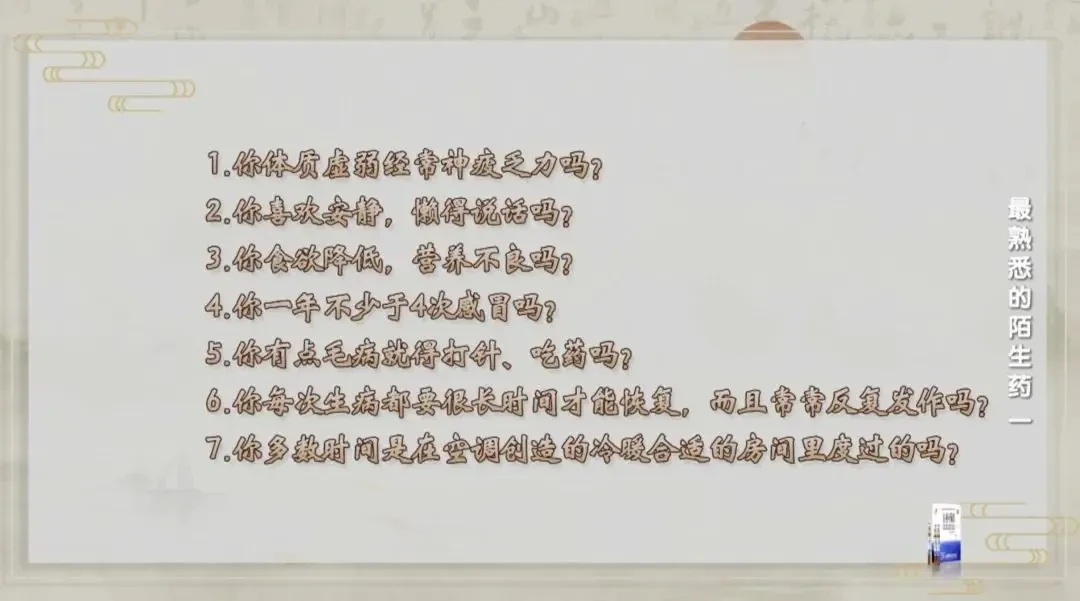 1.你体质虚弱经常神疲乏力吗?
2.你喜欢安静，懒得说话吗?
3.你食欲降低，营养不良吗?
4.你一年不少于4次感冒吗?
5.你有点毛病就得打针、吃药吗?
6.你每次生病都要很长时间才能恢复，而且常常反复发作吗?
7.你多数时间是在空调创造的冷暖合适的房间里度过的吗?
最熟悉的陌生药 一